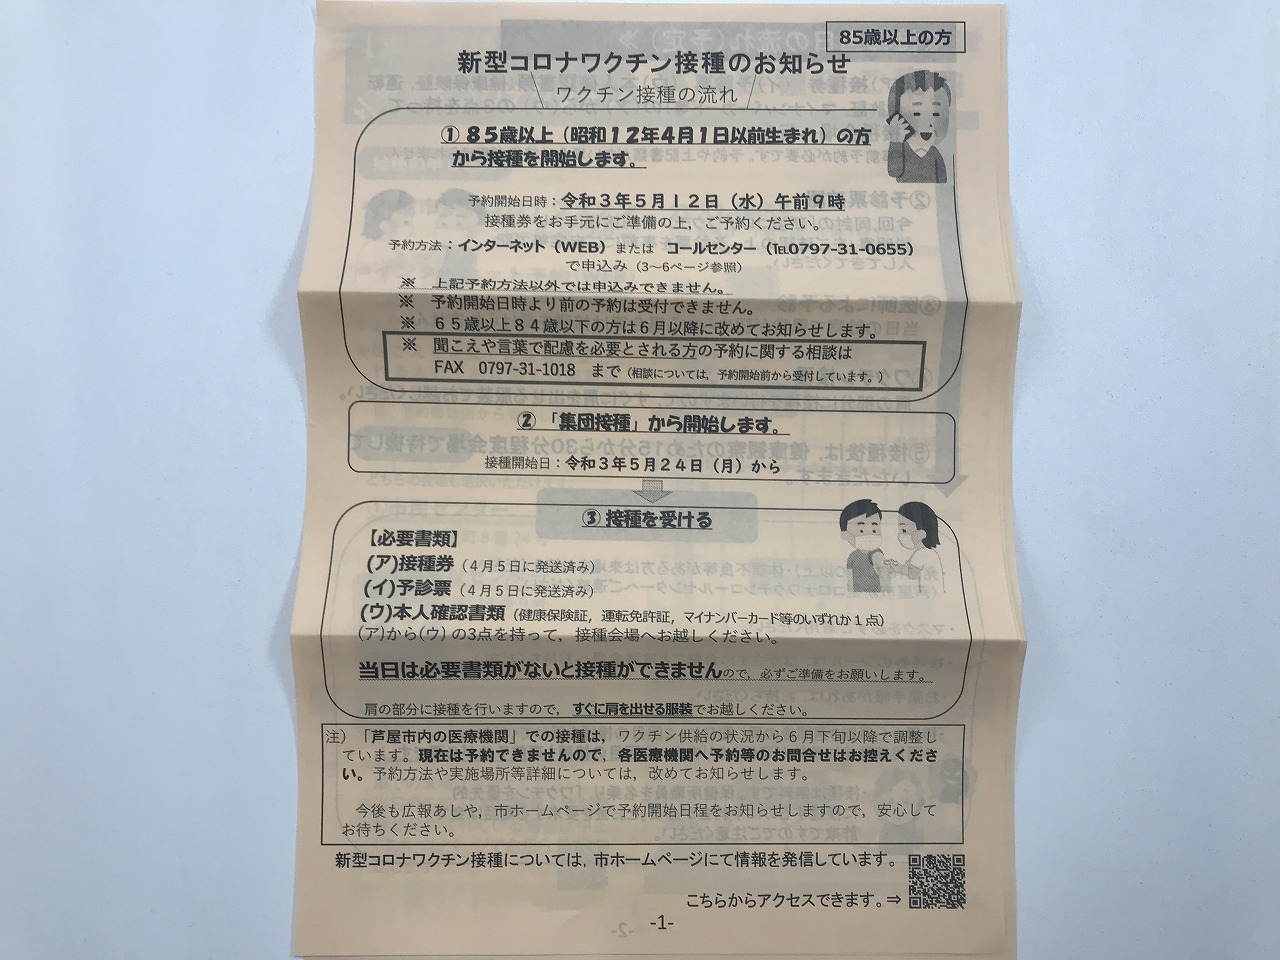 85歳以上の方
新型コロナワクチン接種のお知らせ
ワクチン接種の流れ
① ８５歳以上（昭和１２年４月１日以前生まれ）の方
から接種を開始します。
予約開始日時：令和３年５月１２日（水）午前９時
接種券をお手元にご準備の上，ご予約ください。
予約方法：インターネット（WEB）または コールセンター（℡0797-31-0655）
で申込み（3～6ページ参照）
※ 上記予約方法以外では申込みできません。
※ 予約開始日時より前の予約は受付できません。
※ ６５歳以上８４歳以下の方は６月以降に改めてお知らせします。
※ 聞こえや言葉で配慮を必要とされる方の予約に関する相談は
FAX 0797-31-1018 まで（相談については，予約開始前から受付しています。）
② 「集団接種」から開始します。
接種開始日：令和３年５月２４日（月）から
③ 接種を受ける
【必要書類】
(ア)接種券（４月５日に発送済み）
(イ)予診票（４月５日に発送済み）
(ウ)本人確認書類（健康保険証，運転免許証，マイナンバーカード等のいずれか１点）
(ア)から(ウ)の3点を持って，接種会場へお越しください。
当日は必要書類がないと接種ができませんので，必ずご準備をお願いします。
肩の部分に接種を行いますので，すぐに肩を出せる服装でお越しください。
注）「芦屋市内の医療機関」での接種は，ワクチン供給の状況から６月下旬以降で調整し
ています。現在は予約できませんので，各医療機関へ予約等のお問合せはお控えくださ
い。予約方法や実施場所等詳細については，改めてお知らせします。
今後も広報あしや，市ホームページで予約開始日程をお知らせしますので，安心して
お待ちください。
新型コロナワクチン接種については，市ホームページにて情報を発信しています。
こちらからアクセスできます。⇒
-1-